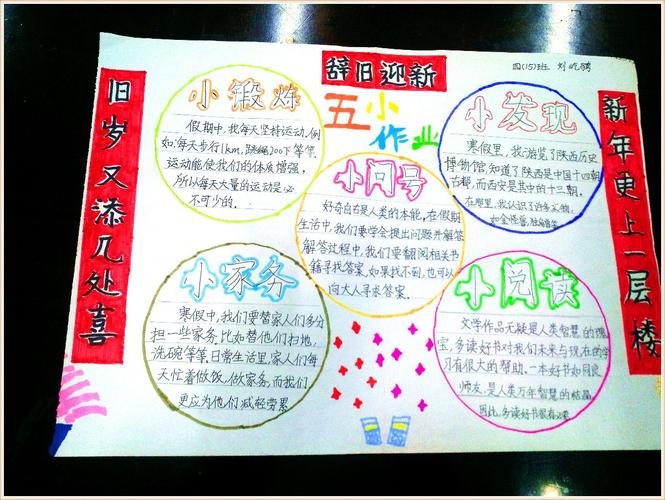 四(15)班 刘屹骋
辞旧迎新
旧岁又添几处喜
新年更上一层楼
五小
作业
小锻炼
假期中,我每天坚持运动,例
如:每天步行1km,跳绳700下等等.
运动能使我们的体质增强,
所以每天大量的运动是必
不可少的.
小发现
寒假里,我游览了陕西历史
博物馆,知道了陕西是中国十四朝
古都,而西安是其中的十三朝.
在那里,我认识了许多文物,
如金怪兽,
小问号
好奇自古是人类的本能,在假期
生活中,我们要学会提出问题并解答
解答过程中,我们要翻阅相关书
籍寻找答案,如果找不到,也可以
向大人寻求答案.
小家务
寒假中,我们要替家人们多分
担一些家务,比如替他们扫地,
洗碗等等,日常生活里,家人们每
天忙着做饭,做家务,而我们
更应为他们减轻劳累
小阅读
文学作品无疑是人类智慧的瑰
宝,多读好书对我们未来与现在的学
习有很大的帮助.一本好书如同良
师友,是人类万年智慧的结晶.
因此,多读好书很有必要